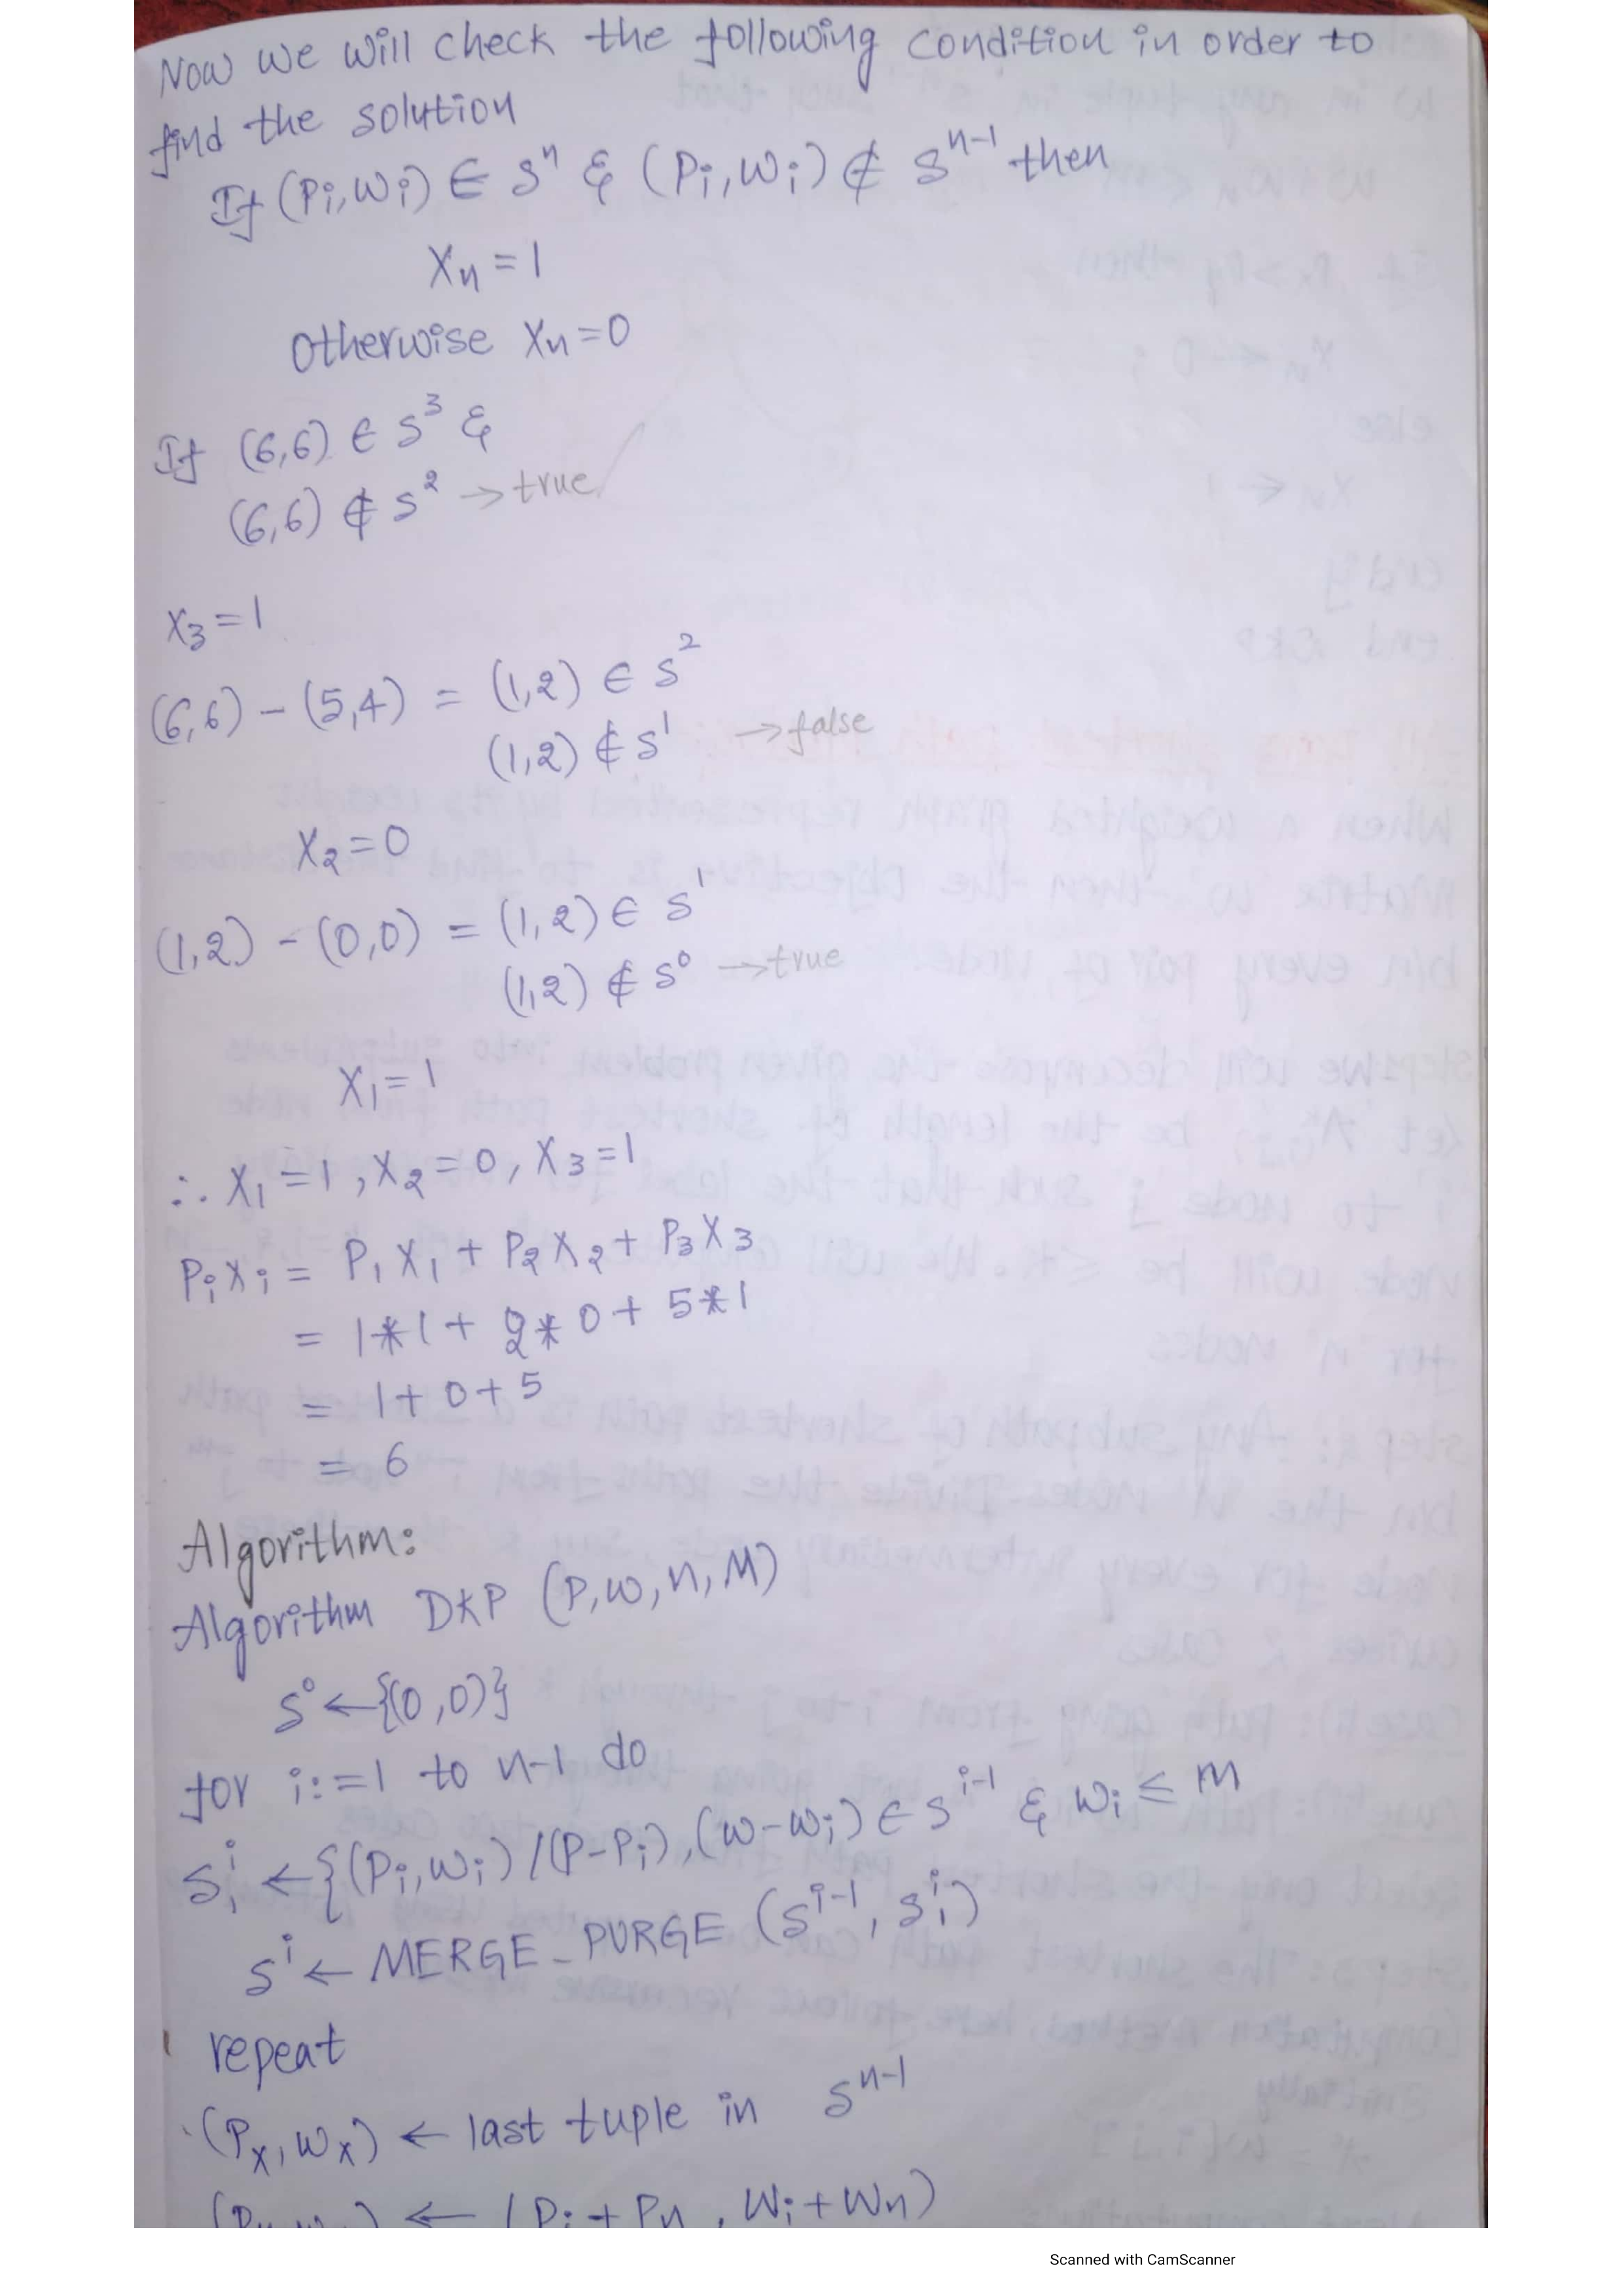 Now we will check the following condition in order to
find the solution
If (Pi,Wi) ∈ Sⁿ & (Pi,Wi) ∉ Sⁿ⁻¹ then
Xn = 1
Otherwise Xn = 0
If (6,6) ∈ S³ &
(6,6) ∉ S² → true
X3 = 1
(6,6) - (5,4) = (1,2) ∈ S²
(1,2) ∉ S¹ → false
X2 = 0
(1,2) - (0,0) = (1,2) ∈ S¹
(1,2) ∉ S⁰ → true
X1 = 1
∴ X1 = 1, X2 = 0, X3 = 1
PiXi = P1X1 + P2X2 + P3X3
= 1*1 + 2*0 + 5*1
= 1 + 0 + 5
= 6
Algorithm:
Algorithm DKP (P,W,n,M)
S⁰ ← {(0,0)}
for i:=1 to n-1 do
S₁ⁱ ← {(Pi,Wi) / (P-Pi),(W-Wi) ∈ Sⁱ⁻¹ & Wi ≤ M
Sⁱ ← MERGE_PURGE (Sⁱ⁻¹, S₁ⁱ)
repeat
(Px,Wx) ← last tuple in Sⁿ⁻¹
← (Pi + Pn, Wi + Wn)
Scanned with CamScanner